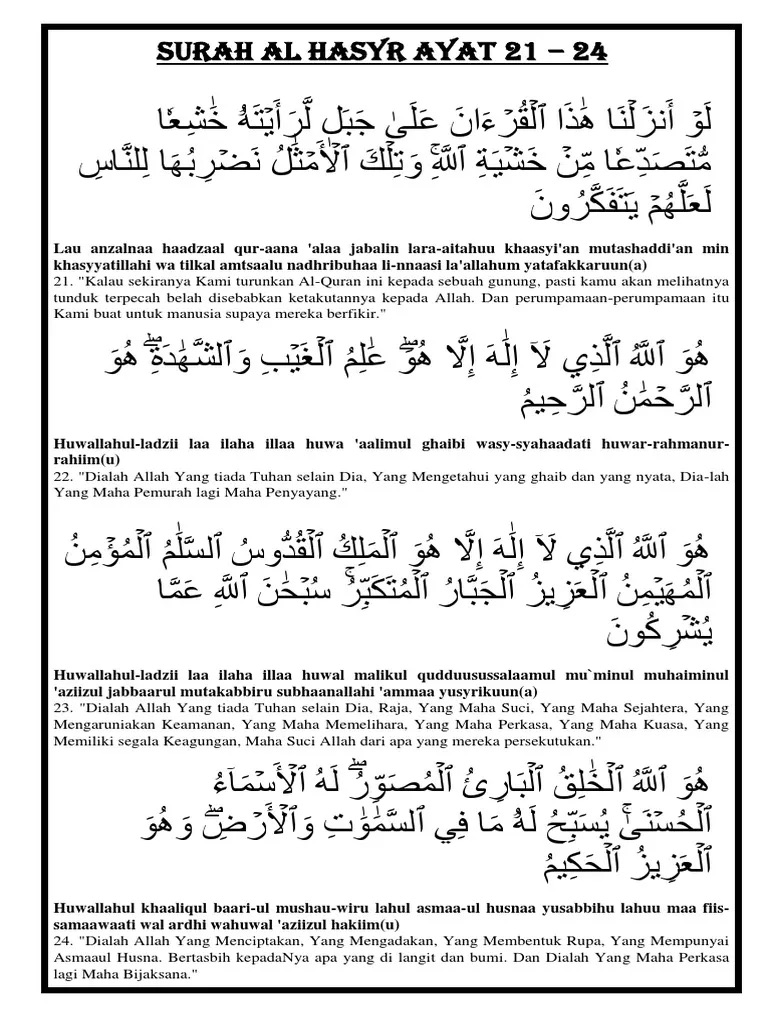 SURAH AL HASYR AYAT 21 – 24
لَوۡ أَنزَلۡنَا هَٰذَا ٱلۡقُرۡءَانَ عَلَىٰ جَبَلٖ لَّرَأَيۡتَهُۥ خَٰشِعٗا
مُّتَصَدِّعٗا مِّنۡ خَشۡيَةِ ٱللَّهِۚ وَتِلۡكَ ٱلۡأَمۡثَٰلُ نَضۡرِبُهَا لِلنَّاسِ
لَعَلَّهُمۡ يَتَفَكَّرُونَ
Lau anzalnaa haadzaal qur-aana 'alaa jabalin lara-aitahuu khaasyi'an mutashaddi'an min
khasyyatillahi wa tilkal amtsaalu nadhribuhaa li-nnaasi la'allahum yatafakkaruun(a)
21. "Kalau sekiranya Kami turunkan Al-Quran ini kepada sebuah gunung, pasti kamu akan melihatnya
tunduk terpecah belah disebabkan ketakutannya kepada Allah. Dan perumpamaan-perumpamaan itu
Kami buat untuk manusia supaya mereka berfikir."
هُوَ ٱللَّهُ ٱلَّذِي لَآ إِلَٰهَ إِلَّا هُوَۖ عَٰلِمُ ٱلۡغَيۡبِ وَٱلشَّهَٰدَةِۖ هُوَ
ٱلرَّحۡمَٰنُ ٱلرَّحِيمُ
Huwallahul-ladzii laa ilaha illaa huwa 'aalimul ghaibi wasy-syahaadati huwar-rahmanur-
rahiim(u)
22. "Dialah Allah Yang tiada Tuhan selain Dia, Yang Mengetahui yang ghaib dan yang nyata, Dia-lah
Yang Maha Pemurah lagi Maha Penyayang."
هُوَ ٱللَّهُ ٱلَّذِي لَآ إِلَٰهَ إِلَّا هُوَ ٱلۡمَلِكُ ٱلۡقُدُّوسُ ٱلسَّلَٰمُ ٱلۡمُؤۡمِنُ
ٱلۡمُهَيۡمِنُ ٱلۡعَزِيزُ ٱلۡجَبَّارُ ٱلۡمُتَكَبِّرُۚ سُبۡحَٰنَ ٱللَّهِ عَمَّا
يُشۡرِكُونَ
Huwallahul-ladzii laa ilaha illaa huwal malikul qudduusussalaamul mu`minul muhaiminul
'aziizul jabbaarul mutakabbiru subhaanallahi 'ammaa yusyrikuun(a)
23. "Dialah Allah Yang tiada Tuhan selain Dia, Raja, Yang Maha Suci, Yang Maha Sejahtera, Yang
Mengaruniakan Keamanan, Yang Maha Memelihara, Yang Maha Perkasa, Yang Maha Kuasa, Yang
Memiliki segala Keagungan, Maha Suci Allah dari apa yang mereka persekutukan."
هُوَ ٱللَّهُ ٱلۡخَٰلِقُ ٱلۡبَارِئُ ٱلۡمُصَوِّرُۖ لَهُ ٱلۡأَسۡمَآءُ
ٱلۡحُسۡنَىٰۚ يُسَبِّحُ لَهُۥ مَا فِي ٱلسَّمَٰوَٰتِ وَٱلۡأَرۡضِۖ وَهُوَ
ٱلۡعَزِيزُ ٱلۡحَكِيمُ
Huwallahul khaaliqul baari-ul mushau-wiru lahul asmaa-ul husnaa yusabbihu lahuu maa fiis-
samaawaati wal ardhi wahuwal 'aziizul hakiim(u)
24. "Dialah Allah Yang Menciptakan, Yang Mengadakan, Yang Membentuk Rupa, Yang Mempunyai
Asmaaul Husna. Bertasbih kepadaNya apa yang di langit dan bumi. Dan Dialah Yang Maha Perkasa
lagi Maha Bijaksana."